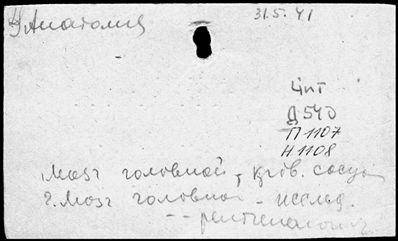 Анатомия 31.5.41
Цит
Д540
П1107
Н1108
Мозг головной, кров. сосу
2. Мозг головной - исслед.
-- рентгеном